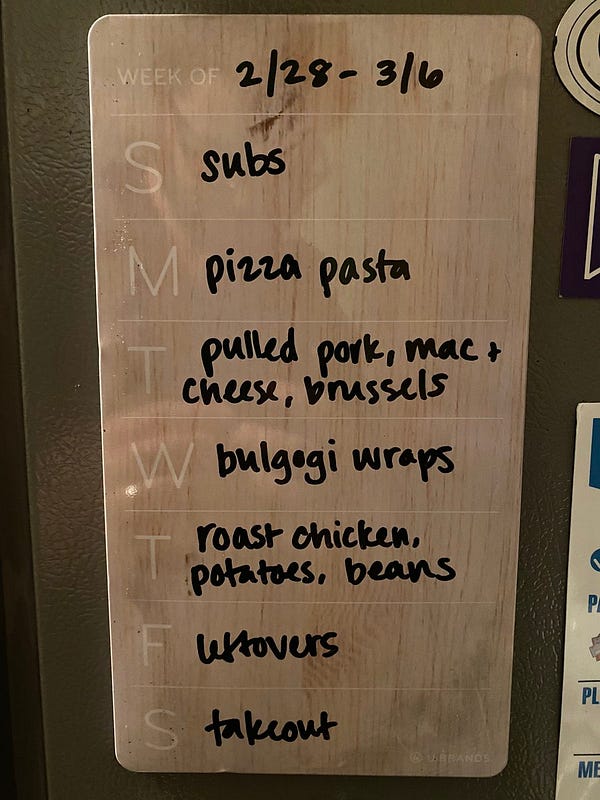 WEEK OF 2/28 - 3/6
S subs
M pizza pasta
T pulled pork, mac +
cheese, brussels
W bulgogi wraps
T roast chicken,
potatoes, beans
F leftovers
S takeout
U BRANDS
PL
ME